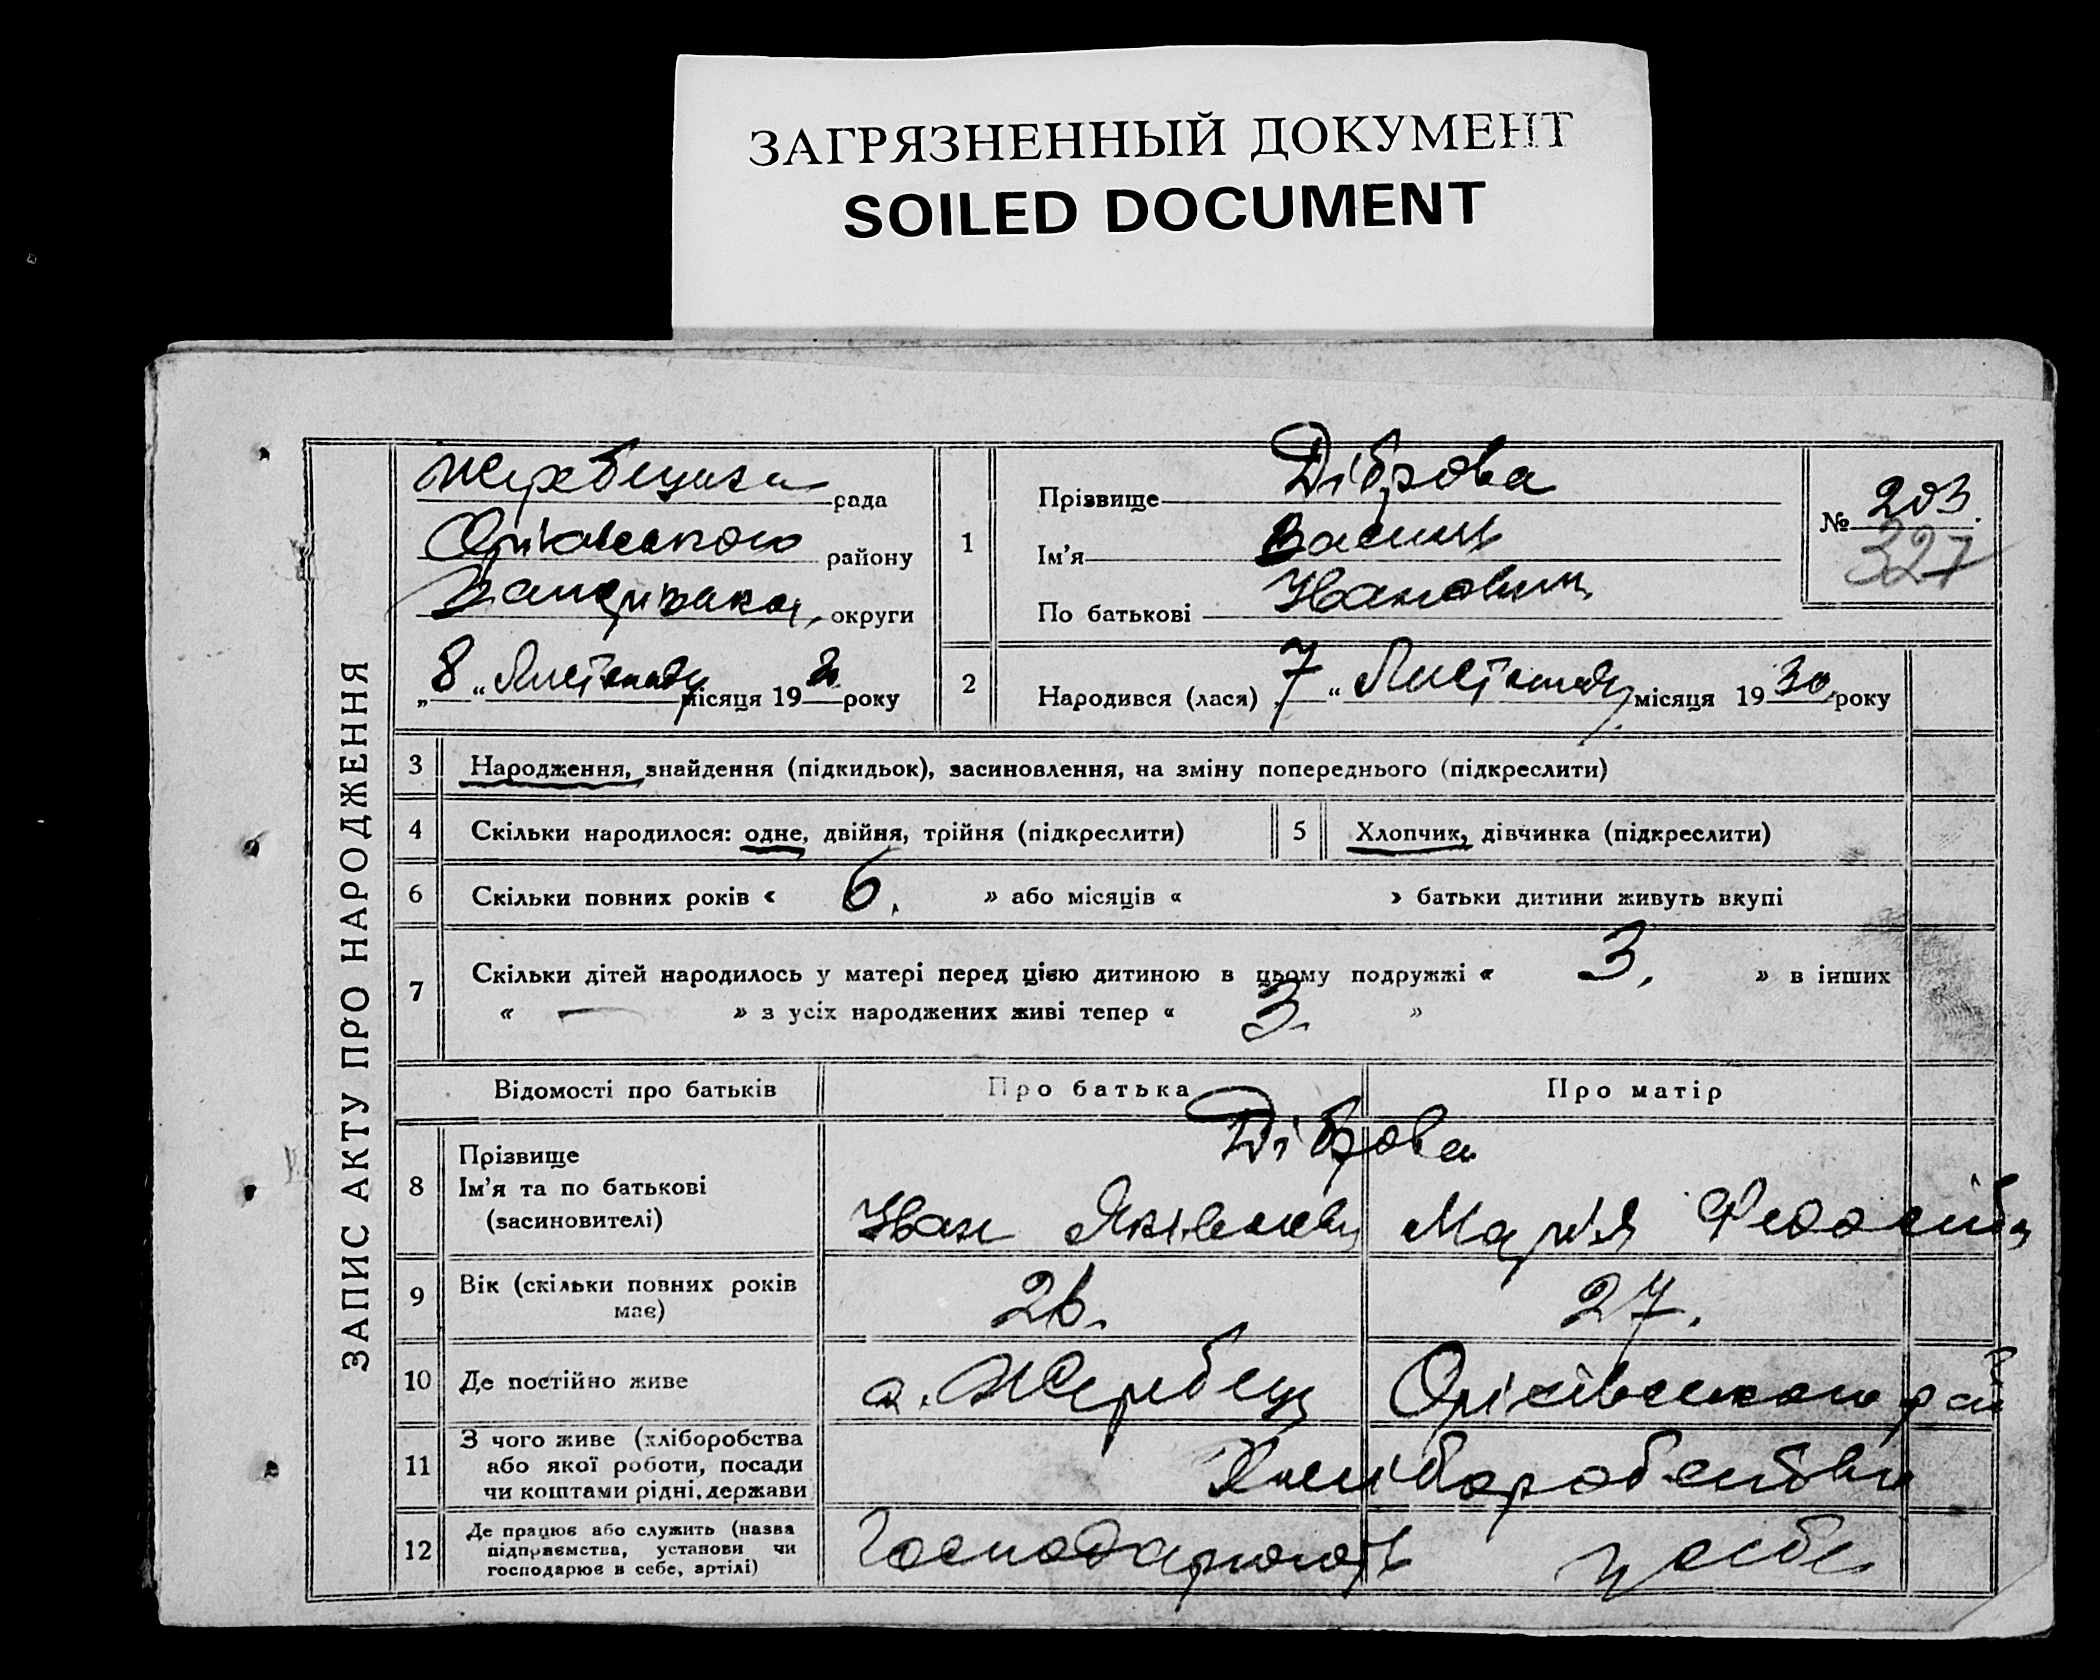 ЗАГРЯЗНЕННЫЙ ДОКУМЕНТ
SOILED DOCUMENT
ЗАПИС АКТУ ПРО НАРОДЖЕННЯ
рада
району
округи
„8“ Листопаду місяця 19 30 року
1
Прізвище Діброва
Ім'я Василь
По батькові Іванович
№ 203.
327
2
Народився (лася) „7“ Листопаду місяця 19 30 року
3 Народження, знайдення (підкидьок), засиновлення, на зміну попереднього (підкреслити)
4 Скільки народилося: одне, двійня, трійня (підкреслити)
5 Хлопчик, дівчинка (підкреслити)
6 Скільки повних років « 6. » або місяців « » батьки дитини живуть вкупі
7 Скільки дітей народилось у матері перед цією дитиною в цьому подружжі « 3. » в інших
« — » з усіх народжених живі тепер « 3. »
Відомості про батьків
Про батька
Про матір
8 Прізвище
Ім'я та по батькові
(засиновителі)
Діброва
Іван Яківлевич
Марія
9 Вік (скільки повних років
має)
26.
27.
10 Де постійно живе
с. Жеребець Оріхівського рай
11 З чого живе (хліборобства
або якої роботи, посади
чи коштами рідні, держави
Хліборобства
12 Де працює або служить (назва
підприємства, установи чи
господарює в себе, артілі)
Господарюють у себе